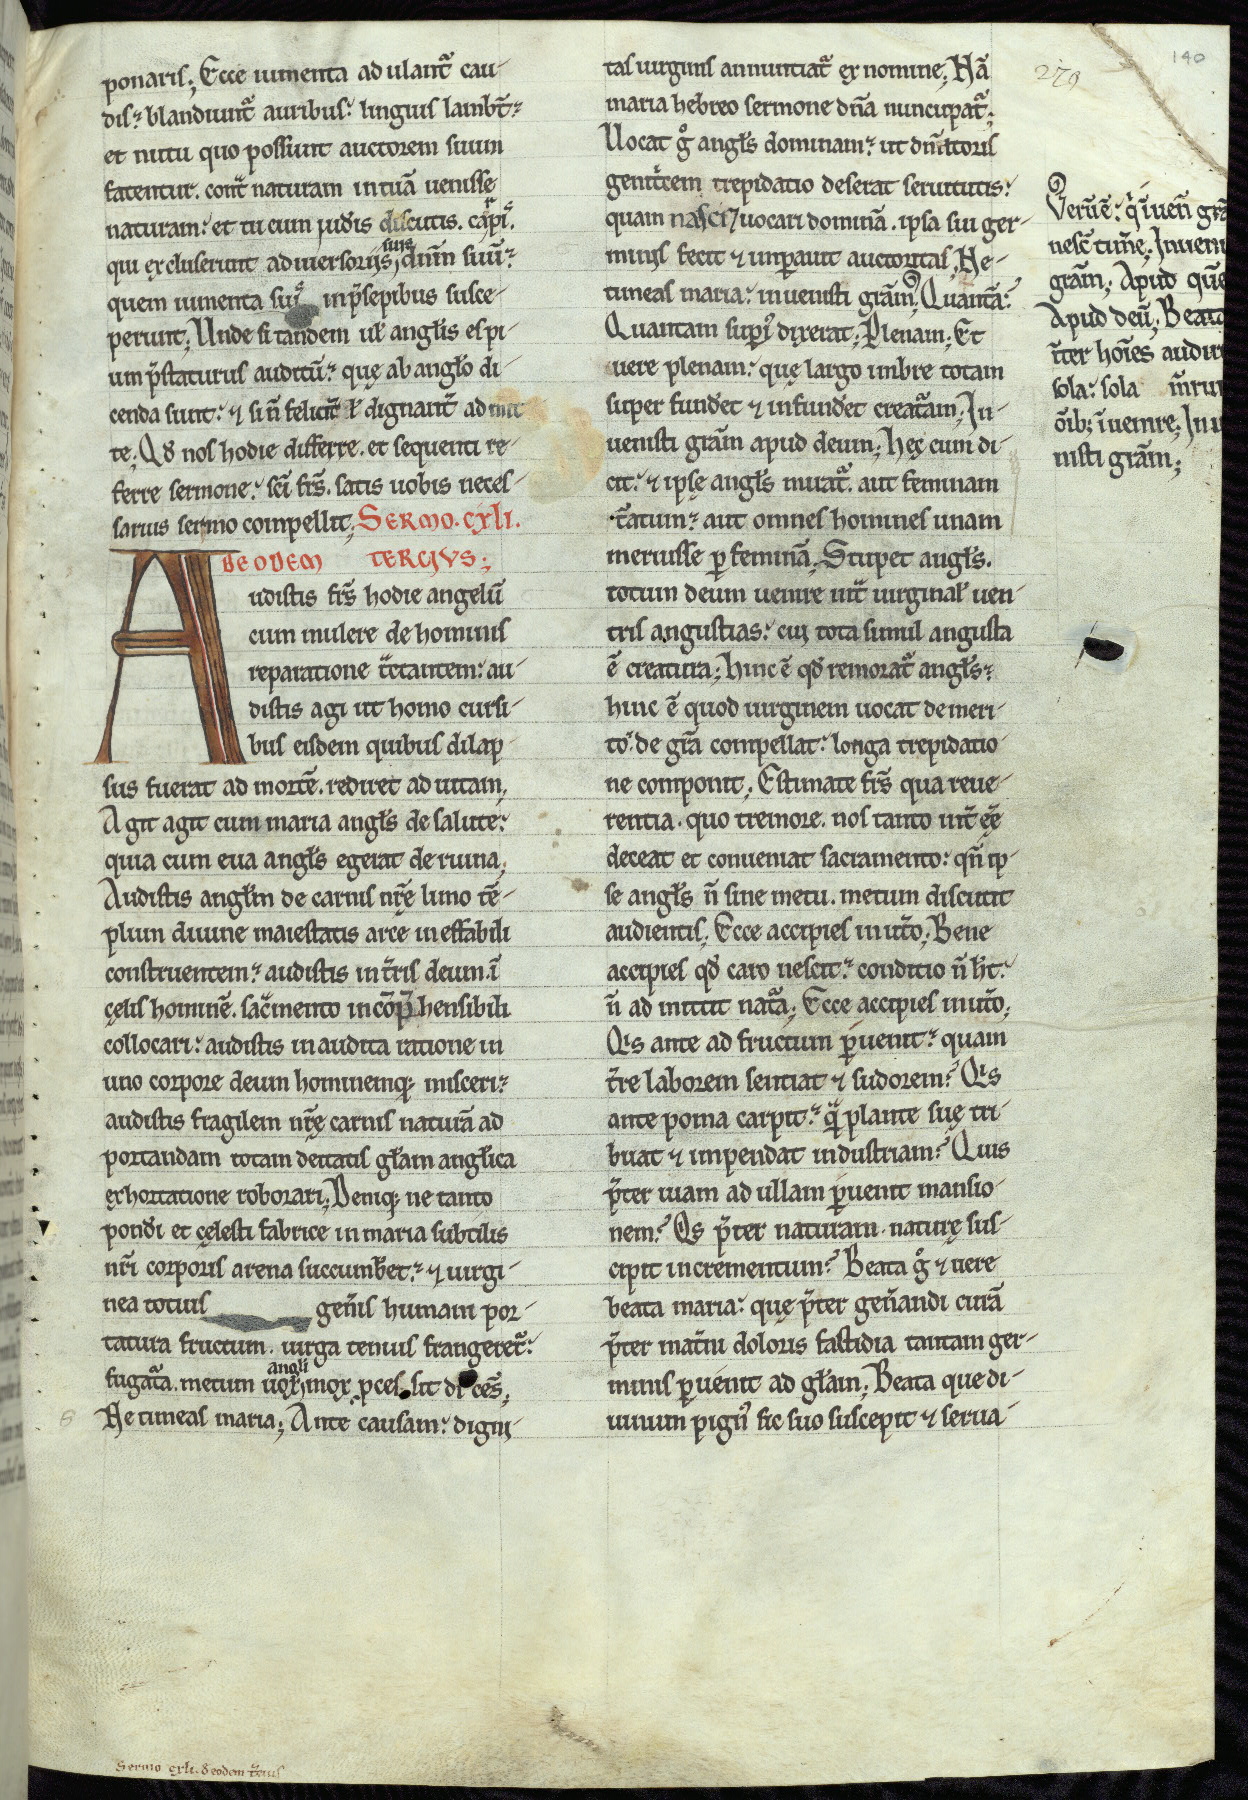 ponaris; Ecce iumenta adulant᷑ cau-
dis: blandiunt᷑ auribus: linguis lambt̄:
et nutu quo possunt auctorem suum
fatentur. cont᷑ naturam in tuā uenisse
naturam: et tu cum iudis discutis.
qui excluserunt adiuersoriis suis dn̄m suū:
quem iumenta sui in p̄sepibus susce-
perunt; Unde si tandem ul' angl'is es pi-
um p̄staturus auditū: quę ab angl'o di-
cenda sunt: ⁊ si n̄ felicit᷑ l' dignant᷑ admit
te; Qd nos hodie differre. et sequenti re-
ferre sermone: sc̄i frs̄. satis uobis neces-
sarius sermo compellit; Sermo. cxli.
de odem tercius;
Audistis frs̄ hodie angelū
cum muliere de hominis
reparatione t᷑ctantem: au-
distis agi ut homo cursi-
bus eisdem quibus dilap-
sus fuerat ad mortē. rediret ad uitam;
Agit agit cum maria angl's de salute:
quia cum eua angl's egerat de ruina;
Audistis angl'm de carnis nr̄ę limo tē-
plum diuine maiestatis arce ineffabili
construentem: audistis in t᷑ris deum. ī
cęlis hominē. sac᷑mento incōp̄hensibili
collocari: audistis inaudita ratione in
uno corpore deum hominemq; misceri:
audistis fragilem nr̄ę carnis naturā ad
portandam totam deitatis gl'am angl'ica
exhortatione roborari; Deniq; ne tanto
pondi et cęlesti fabrice in maria subtilis
nr̄i corporis arena succumb'et: ⁊ uirgi-
nea totius gen̄is humani por-
tatura fructum. uirga tenuis frangeret᷑:
fugat᷑a. metum uox angli mox p̄ces sit dicēs;
Ne timeas maria; Ante causam: digni-
tas uirginis annuntiat᷑ ex nomine; Nā
maria hebreo sermone dn̄a nuncupat᷑;
Uocat g° angl's dominam: ut dn̄atoris
genit᷑cem trepidatio deserat seruitutis:
quam nasci ⁊ uocari dominā. ipsa sui ger-
minis fecit ⁊ imp̄auit auctoritas; Ne
timeas maria: inuenisti gr̄am; Quantā?
Quantam supi᷑ dixerat; Plenam; Et
uere plenam: quę largo imbre totam
super fundet ⁊ infundet creat᷑am; In-
uenisti gr̄am apud deum; Hęc cum di-
cit: ⁊ ipse angl's mirat᷑. aut feminam
t᷑atum: aut omnes homines unam
meruisse p feminā; Stupet angl's.
totum deum uenire int᷑ uirginal' uen-
tris angustias: cui tota simul angusta
ē creatura; Hinc ē qd̄ remorat᷑ angl's:
hinc ē quod uirginem uocat de meri-
to: de gr̄a compellat: longa trepidatio-
ne componit; Estimate frs̄ qua reue-
rentia. quo tremore. nos tanto int᷑ eē
deceat et conueniat sacramento: qn̄ ip-
se angl's n̄ sine metu. metum discutit
audientis; Ecce accipies in ut᷑o; Bene
accipies qd̄ caro nescit: conditio n̄ h't:
n̄ admittit nat᷑a; Ecce accipies in ut᷑o;
Qis ante ad fructum p̄uenit: quam
t᷑re laborem sentiat ⁊ sudorem? Qis
ante poma carpit: q̄ plante suę tri-
buat ⁊ impendat industriam? Quis
p̄ter uiam ad ullam p̄uenit mansio-
nem? Qs p̄ter naturam. naturę sus-
cipit incrementum? Beata g° ⁊ uere
beata maria: quę p̄ter gen̄andi curā
p̄ter mat᷑ni doloris fastidia tantam ger-
minis p̄uenit ad gl'am; Beata que di-
uinum pign᷑ sic suo suscepit ⁊ serua-
279
140
Verūē: q īuen̄ grā
nesc̄ timē. Inueni
gr̄am; Apud quē
Apud deū; Beata
īter hoīes audire
sola: sola m̄rui
oīb; īuenire; In
nisti gr̄am;
Sermo cxli. de eodem t᷑cius